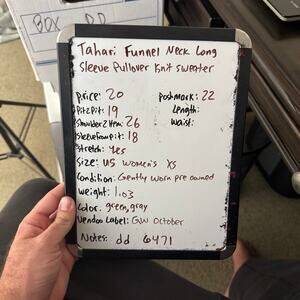 BOX DD
Tahari Funnel Neck Long
Sleeve Pullover Knit Sweater
Price: 20
Poshmark: 22
Pit2Pit: 19
Length:
Shoulder2Hem: 26
Waist:
Sleevefrompit: 18
Stretch: Yes
Size: US Women's XS
Condition: Gently worn pre owned
Weight: 1.03
Color: green, gray
Vendor Label: GW October
Notes: dd 6471